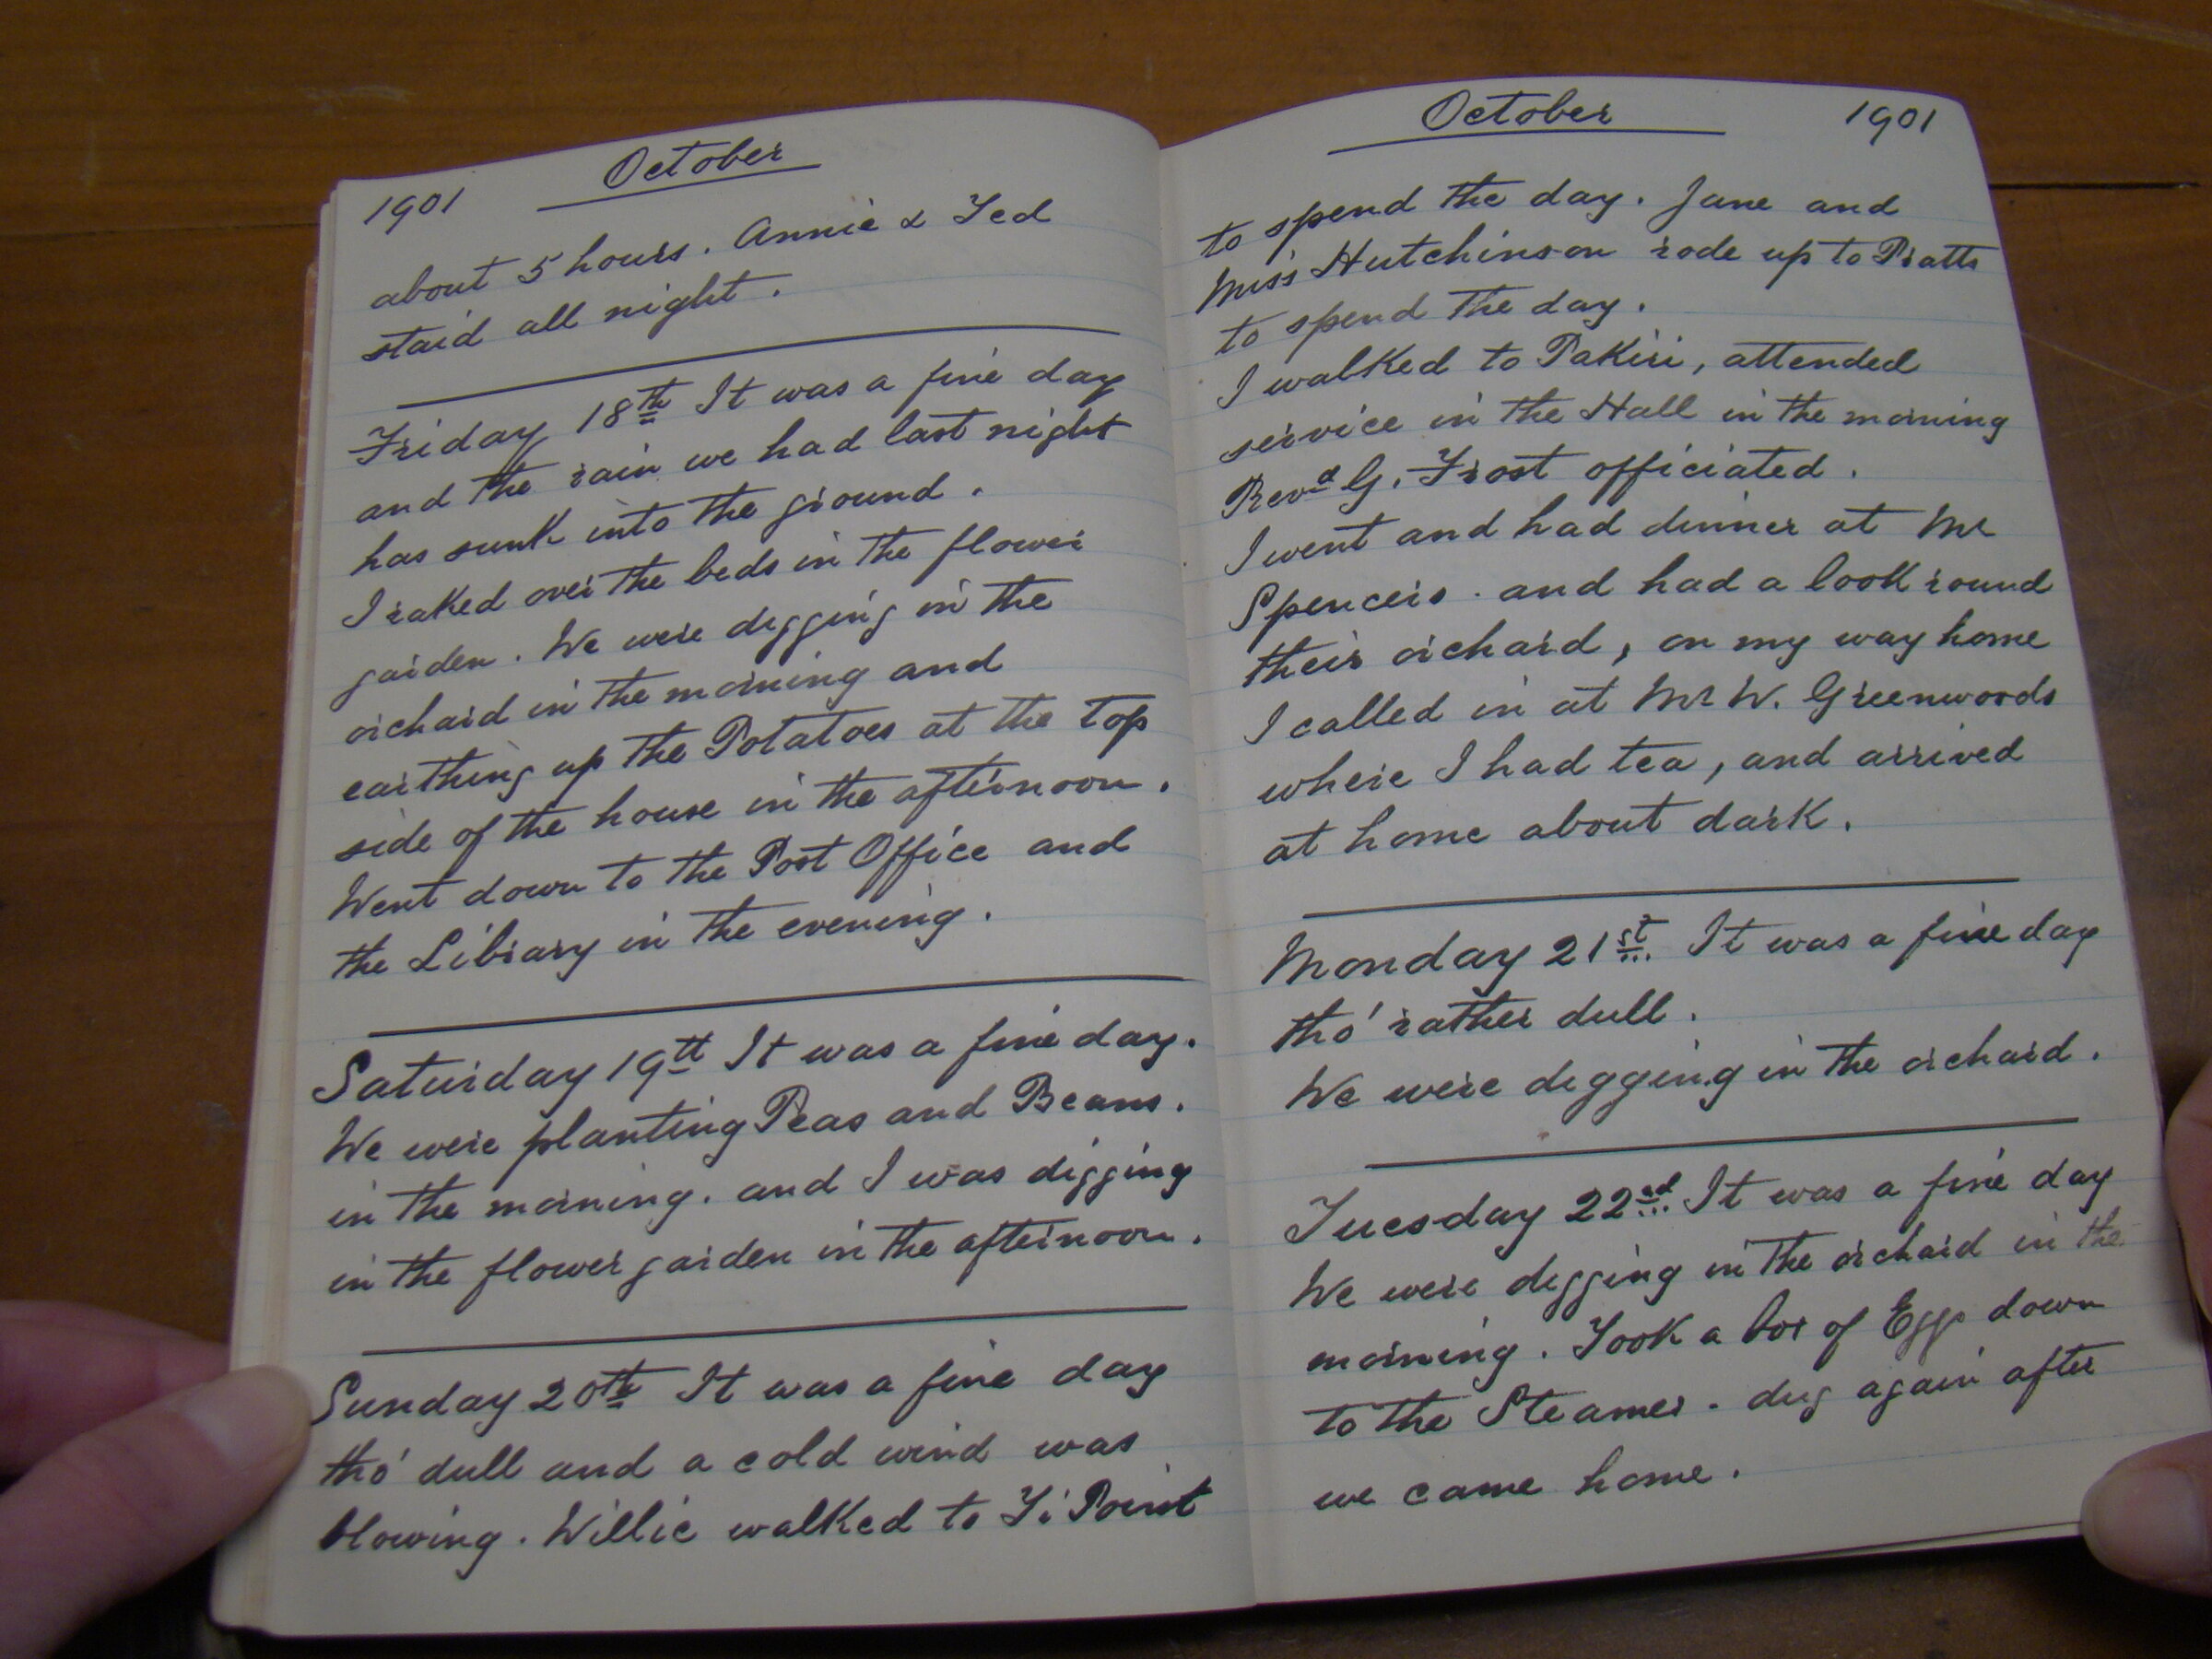 1901 October
about 5 hours. Annie & Ted
staid all night.
Friday 18th It was a fine day
and the rain we had last night
has sunk into the ground.
I raked over the beds in the flower
garden. We were digging in the
orchard in the morning and
earthing up the Potatoes at the top
side of the house in the afternoon.
Went down to the Post Office and
the Library in the evening.
Saturday 19th It was a fine day.
We were planting Peas and Beans.
in the morning. and I was digging
in the flower garden in the afternoon.
Sunday 20th It was a fine day
tho' dull and a cold wind was
blowing. Willie walked to Ti Point
October 1901
to spend the day. June and
Miss Hutchinson rode up to Pratts
to spend the day.
I walked to Pakiri, attended
service in the Hall in the morning
Revd G. Frost officiated.
I went and had dinner at Mr
Spencers. and had a look round
their orchard, on my way home
I called in at Mr W. Greenwoods
where I had tea, and arrived
at home about dark.
Monday 21st It was a fine day
tho' rather dull.
We were digging in the orchard.
Tuesday 22nd It was a fine day
We were digging in the orchard in the
morning. Took a box of Eggs down
to the Steamer. dug again after
we came home.